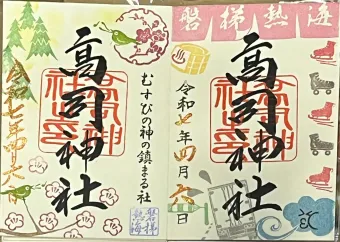 高司神社
むすびの神の鎮まる社
令和七年四月六日
磐梯
熱海
磐梯熱海
高司神社
令和七年四月六日